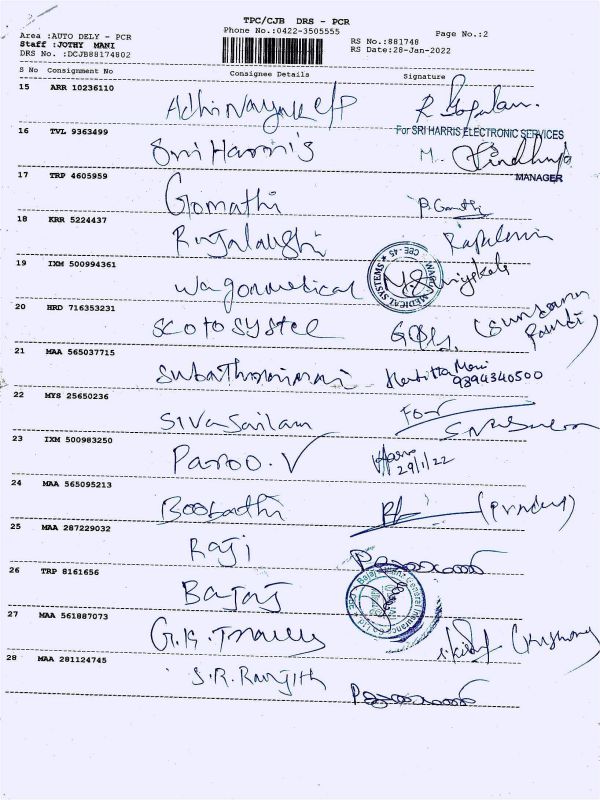 TPC/CJB DRS - PCR
Phone No.:0422-3505555
Page No.:2
Area :AUTO DELY - PCR
Staff :JOTHY MANI
DRS No. :DCJB88174802
RS No.:881748
RS Date:28-Jan-2022
S No Consignment No Consignee Details Signature
15 ARR 10236110
Adhinayak
R Gopalan.
16 TVL 9363499
Sri Harris
For SRI HARRIS ELECTRONIC SERVICES
M.
MANAGER
17 TRP 4605959
Gomathi
18 KRR 5224437
Rajalaxshi
19 IXM 500994361
Wagonmedical
MEDICAL SYSTEMS
CBE-45
20 HRD 716353231
Scoto system
21 MAA 565037715
Subathramani
Mani
9894340500
22 MYS 25650236
Siva Sailam
For
23 IXM 500983250
Paroo.V
29/1/22
24 MAA 565095213
Boobathi
25 MAA 287229032
Raji
26 TRP 8161656
Bajaj
Bajaj Allianz General Insurance Co. Ltd
27 MAA 561887073
G.K. Travels
28 MAA 281124745
S.R. Ranjith